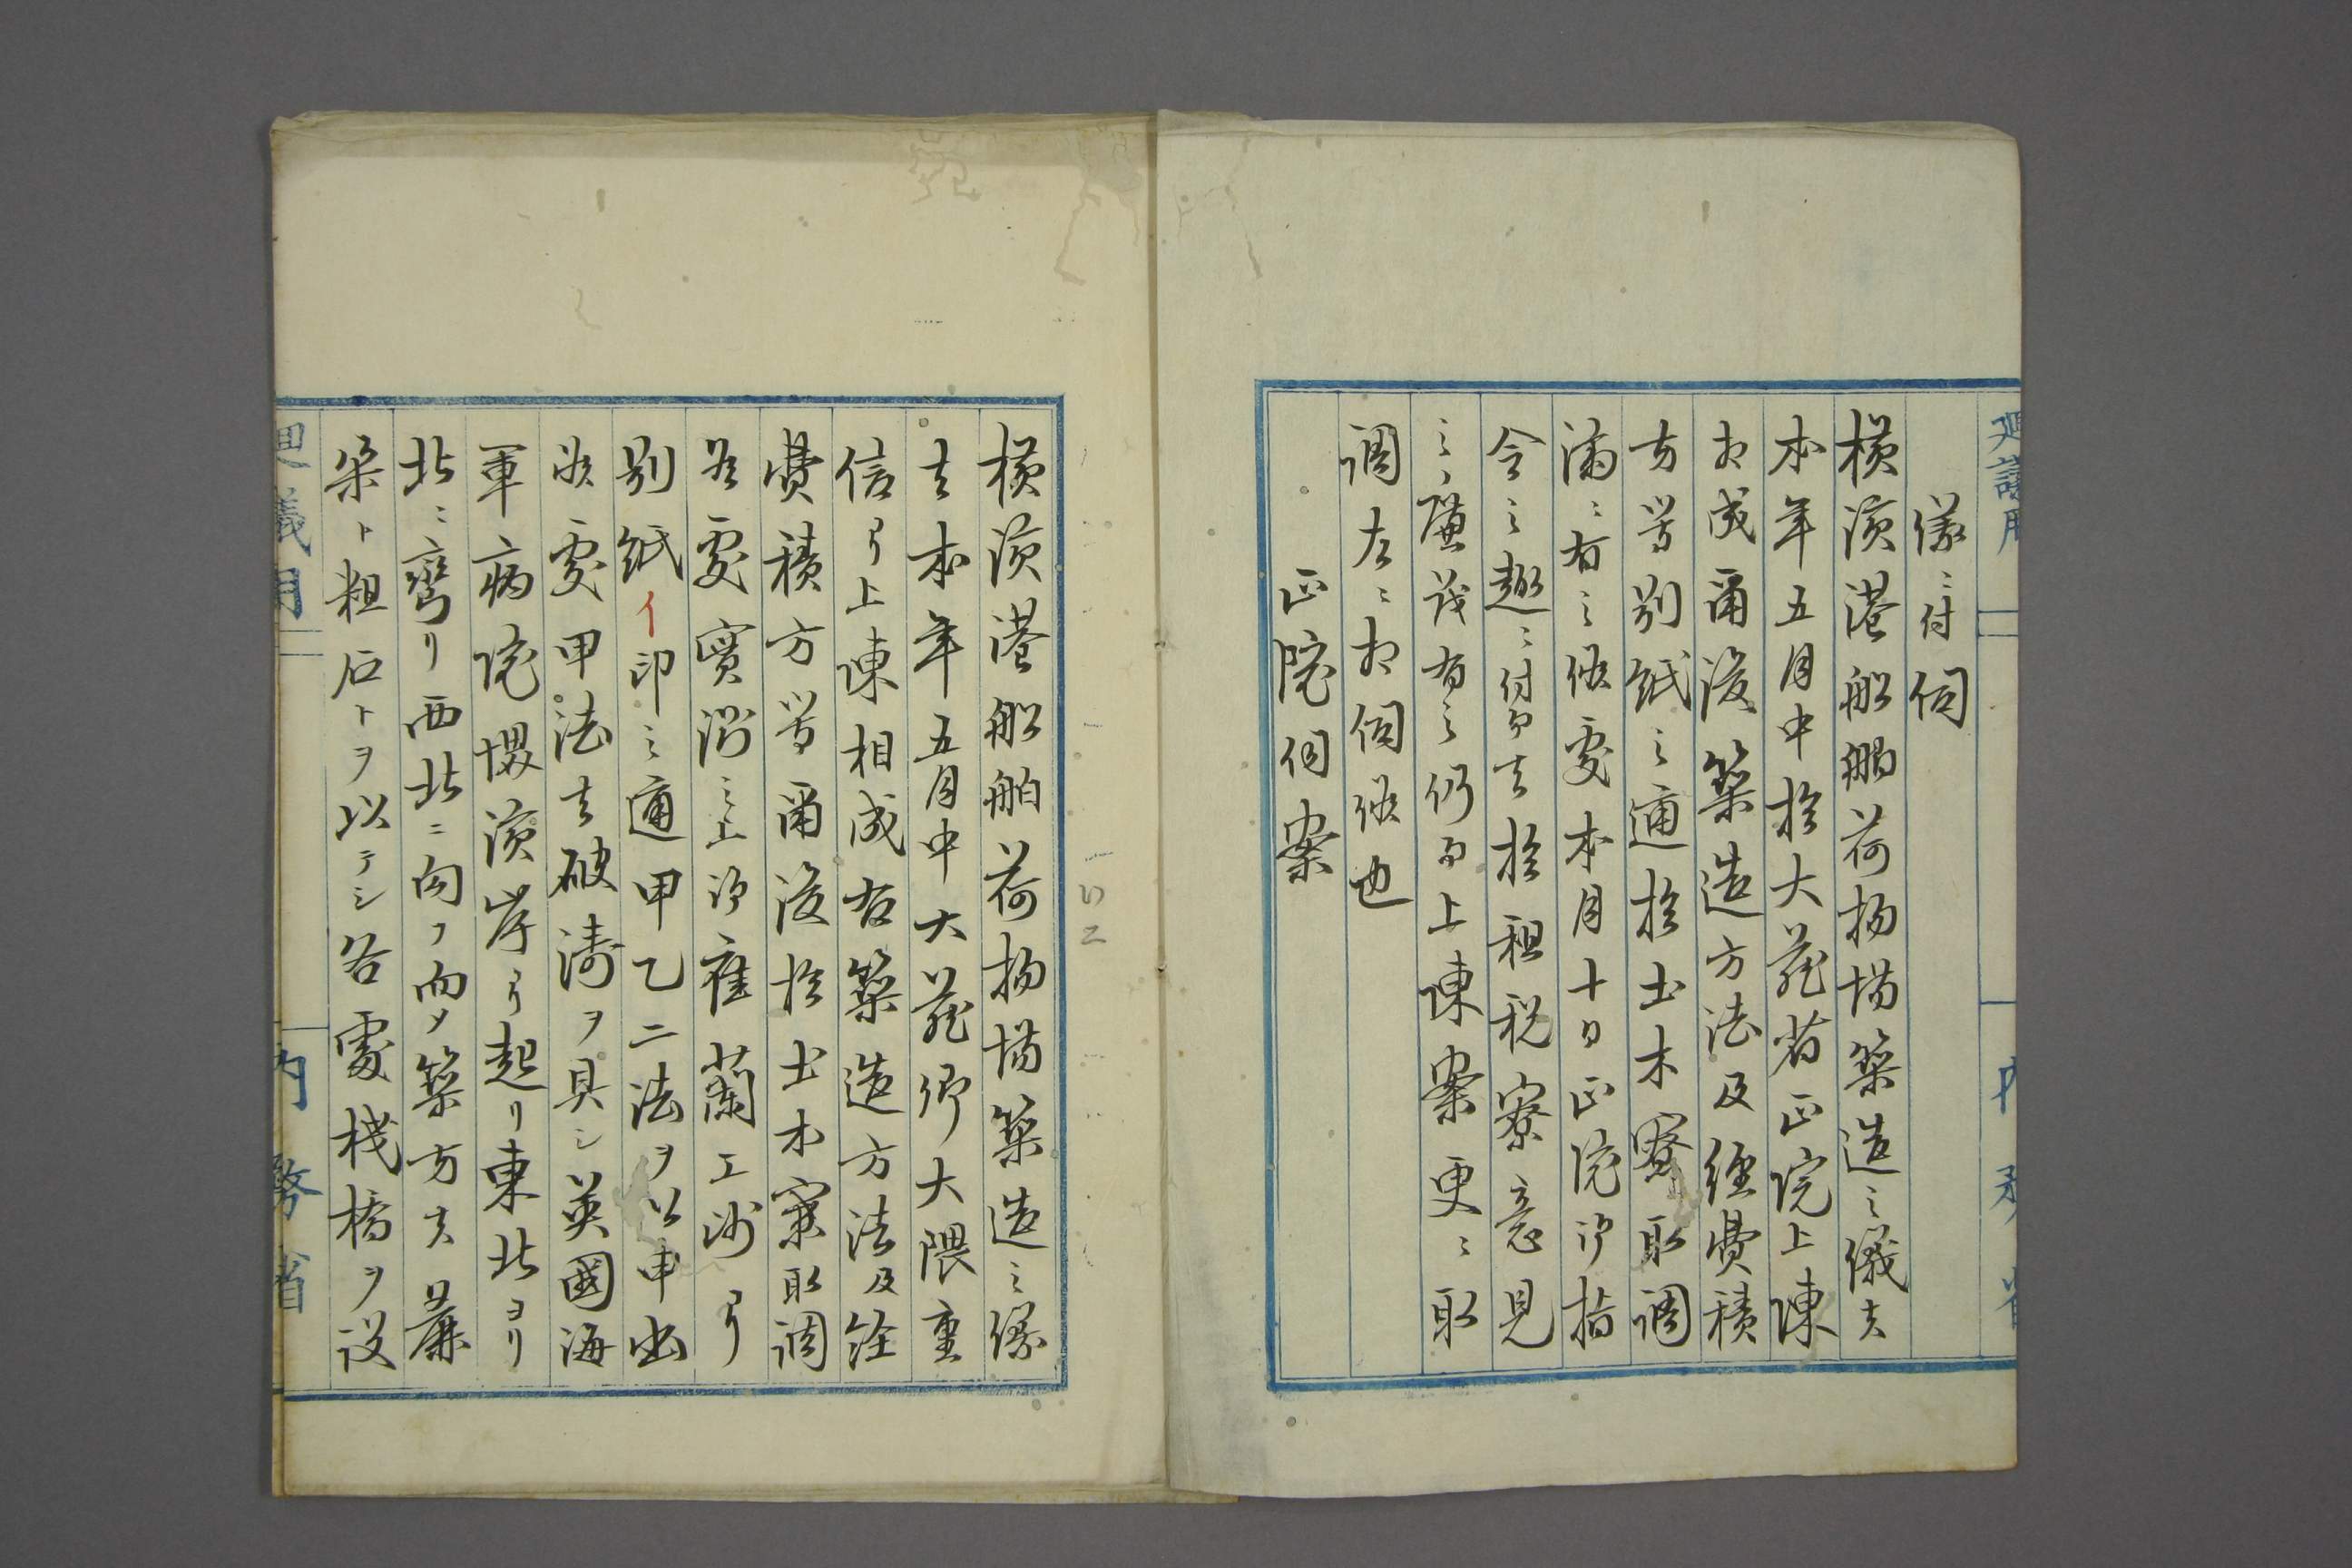 廻議用
内務省
儀ニ付伺
横濱港船舶荷揚場築造之儀者
本年五月中於大蔵省正院上陳
相成爾後築造方法及経費積
方等別紙之通於土木寮取調
済ニ有之候處本月十日正院御指
令之趣ニ付而者於租税寮意見
之廉茂有之仍而上陳案更ニ取
調左ニ相伺候也
正院伺案
横濱港船舶荷揚場築造之儀
者本年五月中大蔵卿大隈重
信ヨリ上陳相成右築造方法及経
費積方等爾後於土木寮取調
候處實測之上御雇蘭工師ヨリ
別紙イ印之通甲乙二法ヲ以申出
候處甲法者破濤ヲ具シ英國海
軍病院横濱岸ヨリ起リ東北ヨリ
北ニ彎リ西北ニ向フ而メ築方者
桒ト粗石トヲ以テシ各處桟橋ヲ設
廻議用
内務省